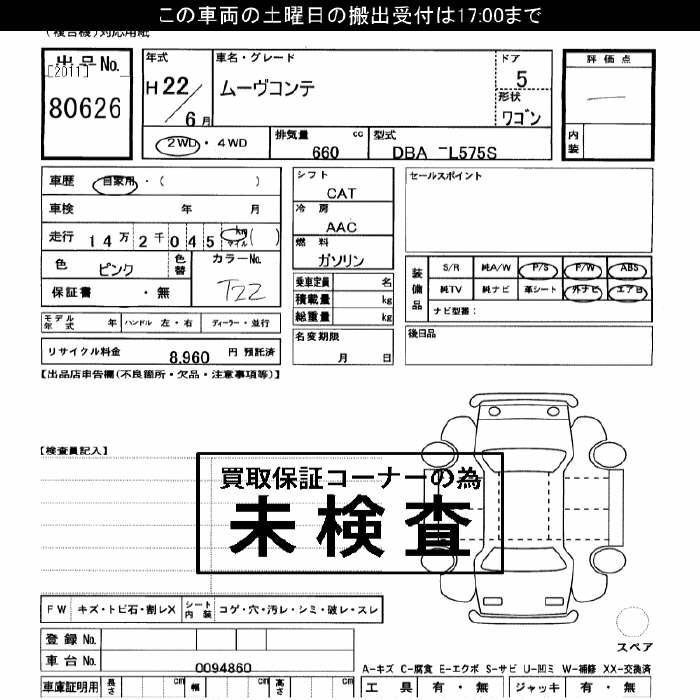 この車両の土曜日の搬出受付は17:00まで
(複合機)対応用紙
出品No.
[2011]
80626
年式
H22/6月
車名・グレード
ムーヴコンテ
ドア
5
形状
ワゴン
評価点
内装
2WD・4WD
排気量 cc
660
型式
DBA-L575S
車歴 自家用・( )
車検 年 月
走行 14万2千045 km マイル ( )
色 ピンク 色替
カラーNo.
T22
保証書 ・無
シフト
CAT
冷房
AAC
燃料
ガソリン
乗車定員 名
積載量 kg
総重量 kg
セールスポイント
装備品
S/R 純A/W P/S P/W ABS
純TV 純ナビ 革シート 外ナビ エアB
ナビ型番:
モデル年式 年 ハンドル 左・右 ディーラー・並行
リサイクル料金 8,960 円 預託済
名変期限
月 日
後日品
【出品店申告欄(不良箇所・欠品・注意事項等)】
【検査員記入】
買取保証コーナーの為
未検査
FW キズ・トビ石・割レX シート内装 コゲ・穴・汚レ・シミ・破レ・スレ
登録No.
車台No. 0094860
車庫証明用 長さ cm 幅 cm 高さ cm
スペア
A-キズ C-腐食 E-エクボ S-サビ U-凹ミ W-補修 XX-交換済
工具 有・無 ジャッキ 有・無